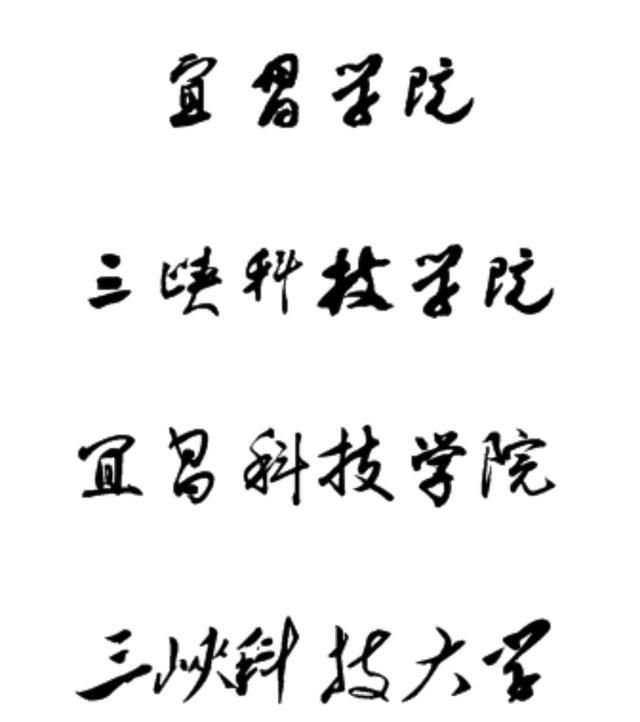 宜昌学院
三峡科技学院
宜昌科技学院
三峡科技大学